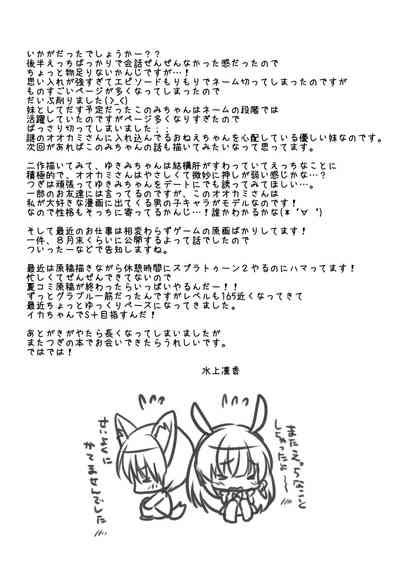 いかがだったでしょうかー？？
後半えっちばっかりで会話ぜんぜんなかった感だったので
ちょっと物足りないかんじですが…！
思い入れが強すぎてエピソードもりもりでネーム切ってしまったのですが
ものすごいページが多くなってしまったので
だいぶ削りました(>_<)
妹としてだす予定だったこのみちゃんはネームの段階では
活躍していたのですがページ多くなりすぎたので
ばっさり切ってしまいました；；
謎のオオカミさんに入れ込んでるおねえちゃんを心配している優しい妹なのです。
次回があればこのみちゃんの話も描いてみたいなって思ってます。
二作描いてみて、ゆきみちゃんは結構肝がすわっていてえっちなことに
積極的で、オオカミさんはやさしくて微妙に押しが弱い感じかな…？
つぎは頑張ってゆきみちゃんをデートにでも誘ってみてほしい…。
一部のお友達には言ってるのですが、このオオカミさんは、
私が大好きな漫画に出てくる男の子キャラがモデルなのです！
なので性格もそっちに寄ってるかんじ…！誰かわかるかな(*´∀｀)
そして最近のお仕事は相変わらずゲームの原画ばかりしてます！
一件、８月末くらいに公開するよって話でしたので
ついったーなどで告知しますね。
最近は原稿描きながら休憩時間にスプラトゥーン２やるのにハマってます！
忙しくてぜんぜんできてないので
夏コミ原稿が終わったらいっぱいやるんだー！！
ずっとグラブル一筋だったんですがレベルも165近くなってきて
最近ちょっとゆっくりペースになってきました。
イカちゃんでS+目指すんだ！
あとがきがやたら長くなってしまいましたが
またつぎの本でお会いできたらうれしいです。
ではでは！
水上凛香
またえっちなこと
しちゃったよ〜
せいよくに
かてませんでした